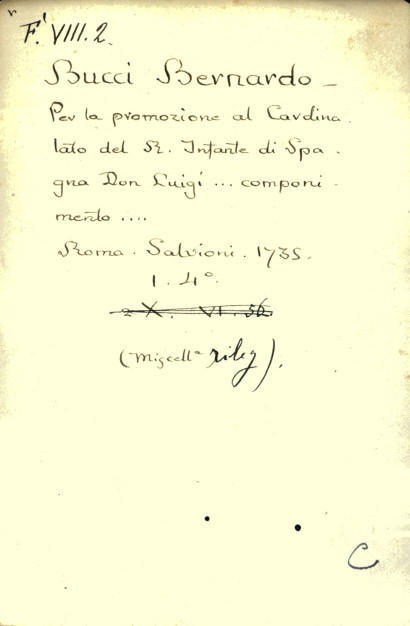 F.' VIII. 2.
Bucci Bernardo –
Per la promozione al Cardina.
lato del R. Infante di Spa.
gna Don Luigi ... componi-
mento ....
Roma. Salvioni. 1735.
1. 4°.
2 X. VI. 56
(Miscell.ª rileg).
C